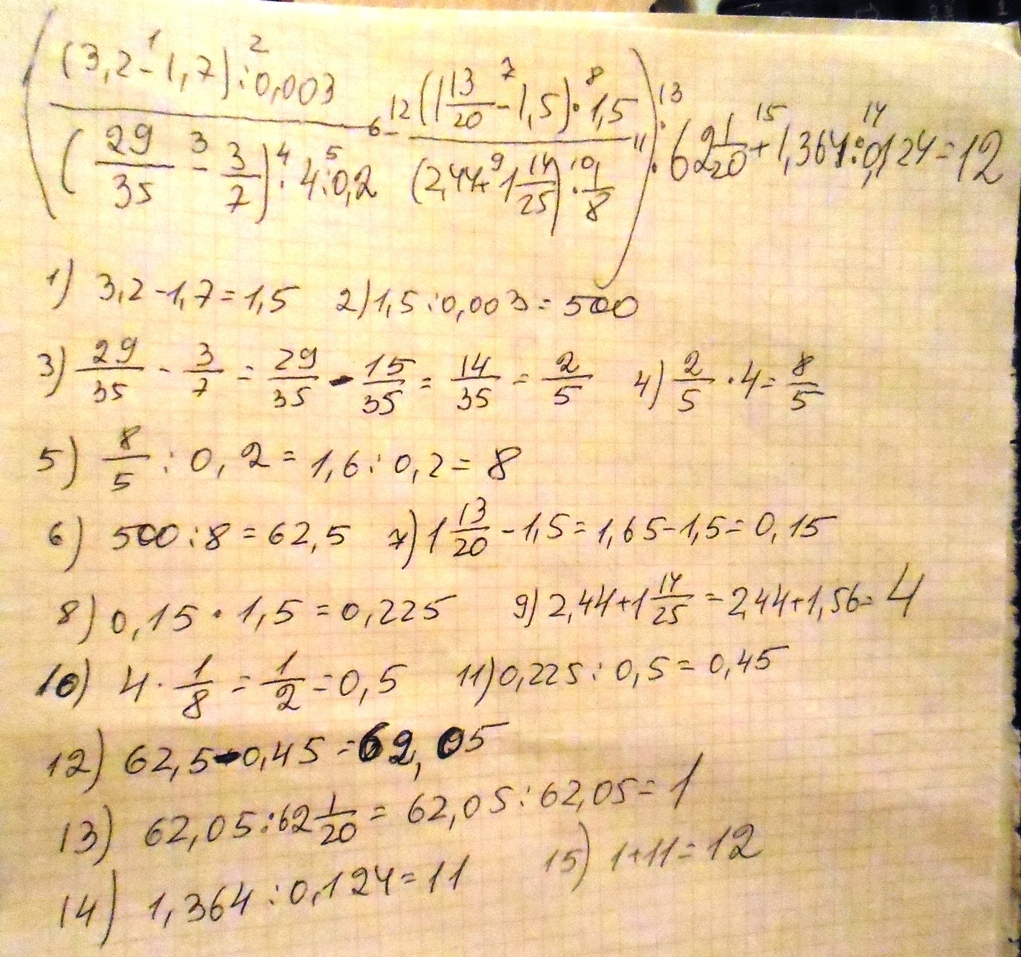 (((3,2-1,7):0,003)/((29/35-3/7):4:0,2) - ((1 13/20-1,5)·1,5)/((2,44+1 14/25)·1/8)):62 1/20+1,364:0,124=12
1) 3,2-1,7=1,5 2) 1,5:0,003=500
3) 29/35-3/7=29/35-15/35=14/35=2/5 4) 2/5·4=8/5
5) 8/5:0,2=1,6:0,2=8
6) 500:8=62,5 7) 1 13/20-1,5=1,65-1,5=0,15
8) 0,15·1,5=0,225 9) 2,44+1 14/25=2,44+1,56=4
10) 4·1/8=1/2=0,5 11) 0,225:0,5=0,45
12) 62,5-0,45=62,05
13) 62,05:62 1/20=62,05:62,05=1
14) 1,364:0,124=11 15) 1+11=12